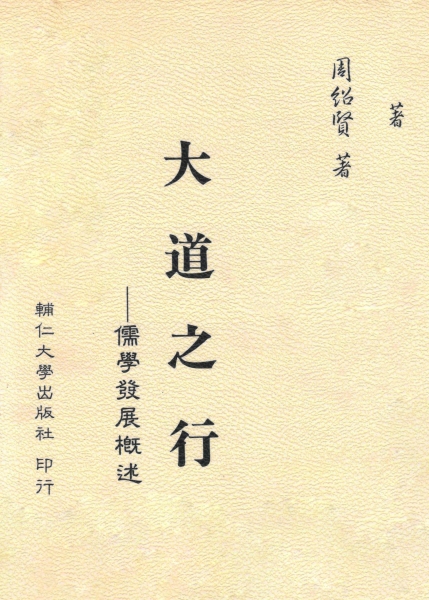 著
周紹賢 著
大道之行
——儒學發展概述
輔仁大學出版社 印行